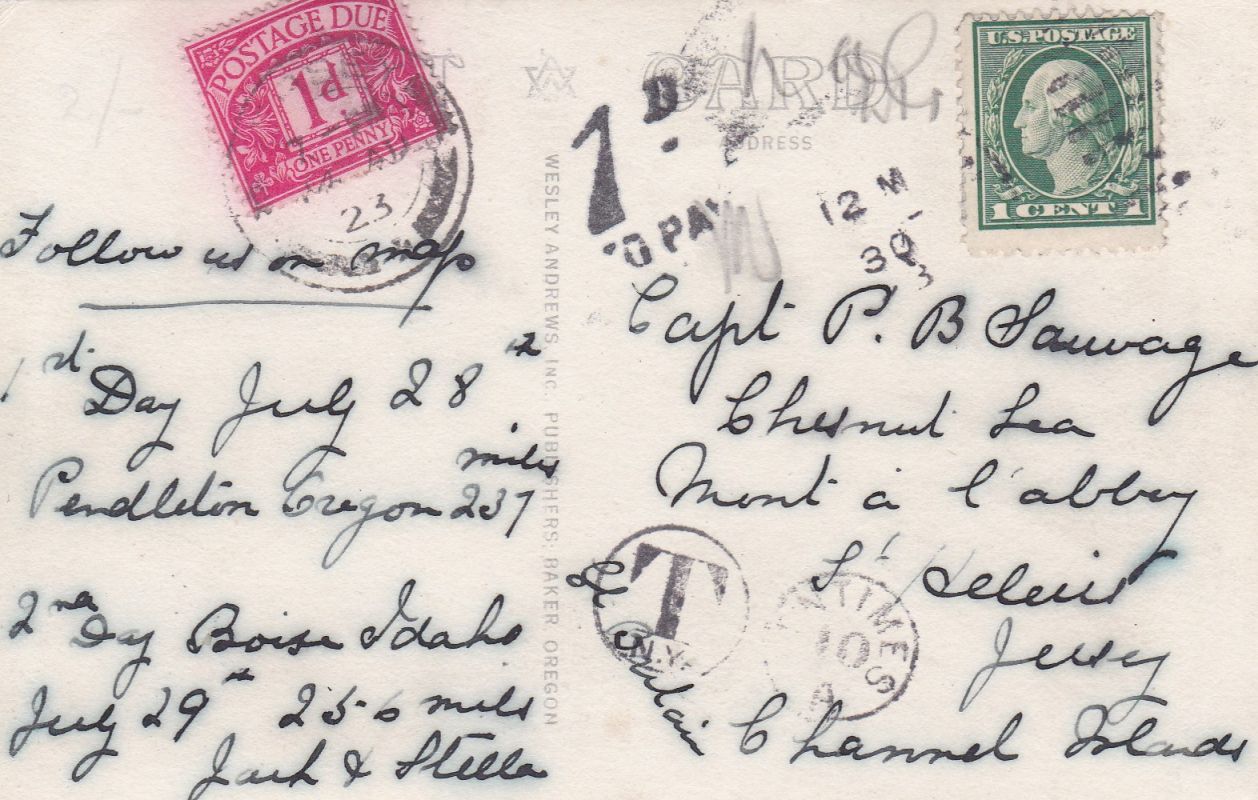 POSTAGE DUE
1d
ONE PENNY
23
2/-
CARD
ADDRESS
1D.
TO PAY
12 M
30
U.S. POSTAGE
1 CENT 1
WESLEY ANDREWS, INC. PUBLISHERS: BAKER, OREGON
Follow us on map
1st Day July 28th
Pendleton Oregon 237 miles
2nd Day Boise Idaho
July 29th 256 miles
Jack & Stella
Capt P. B Sauvage
Chesnut Lea
Mont à l'abbey
St Heliers
Jersey
Channel Islands
T
N.Y.
CENTIMES
10